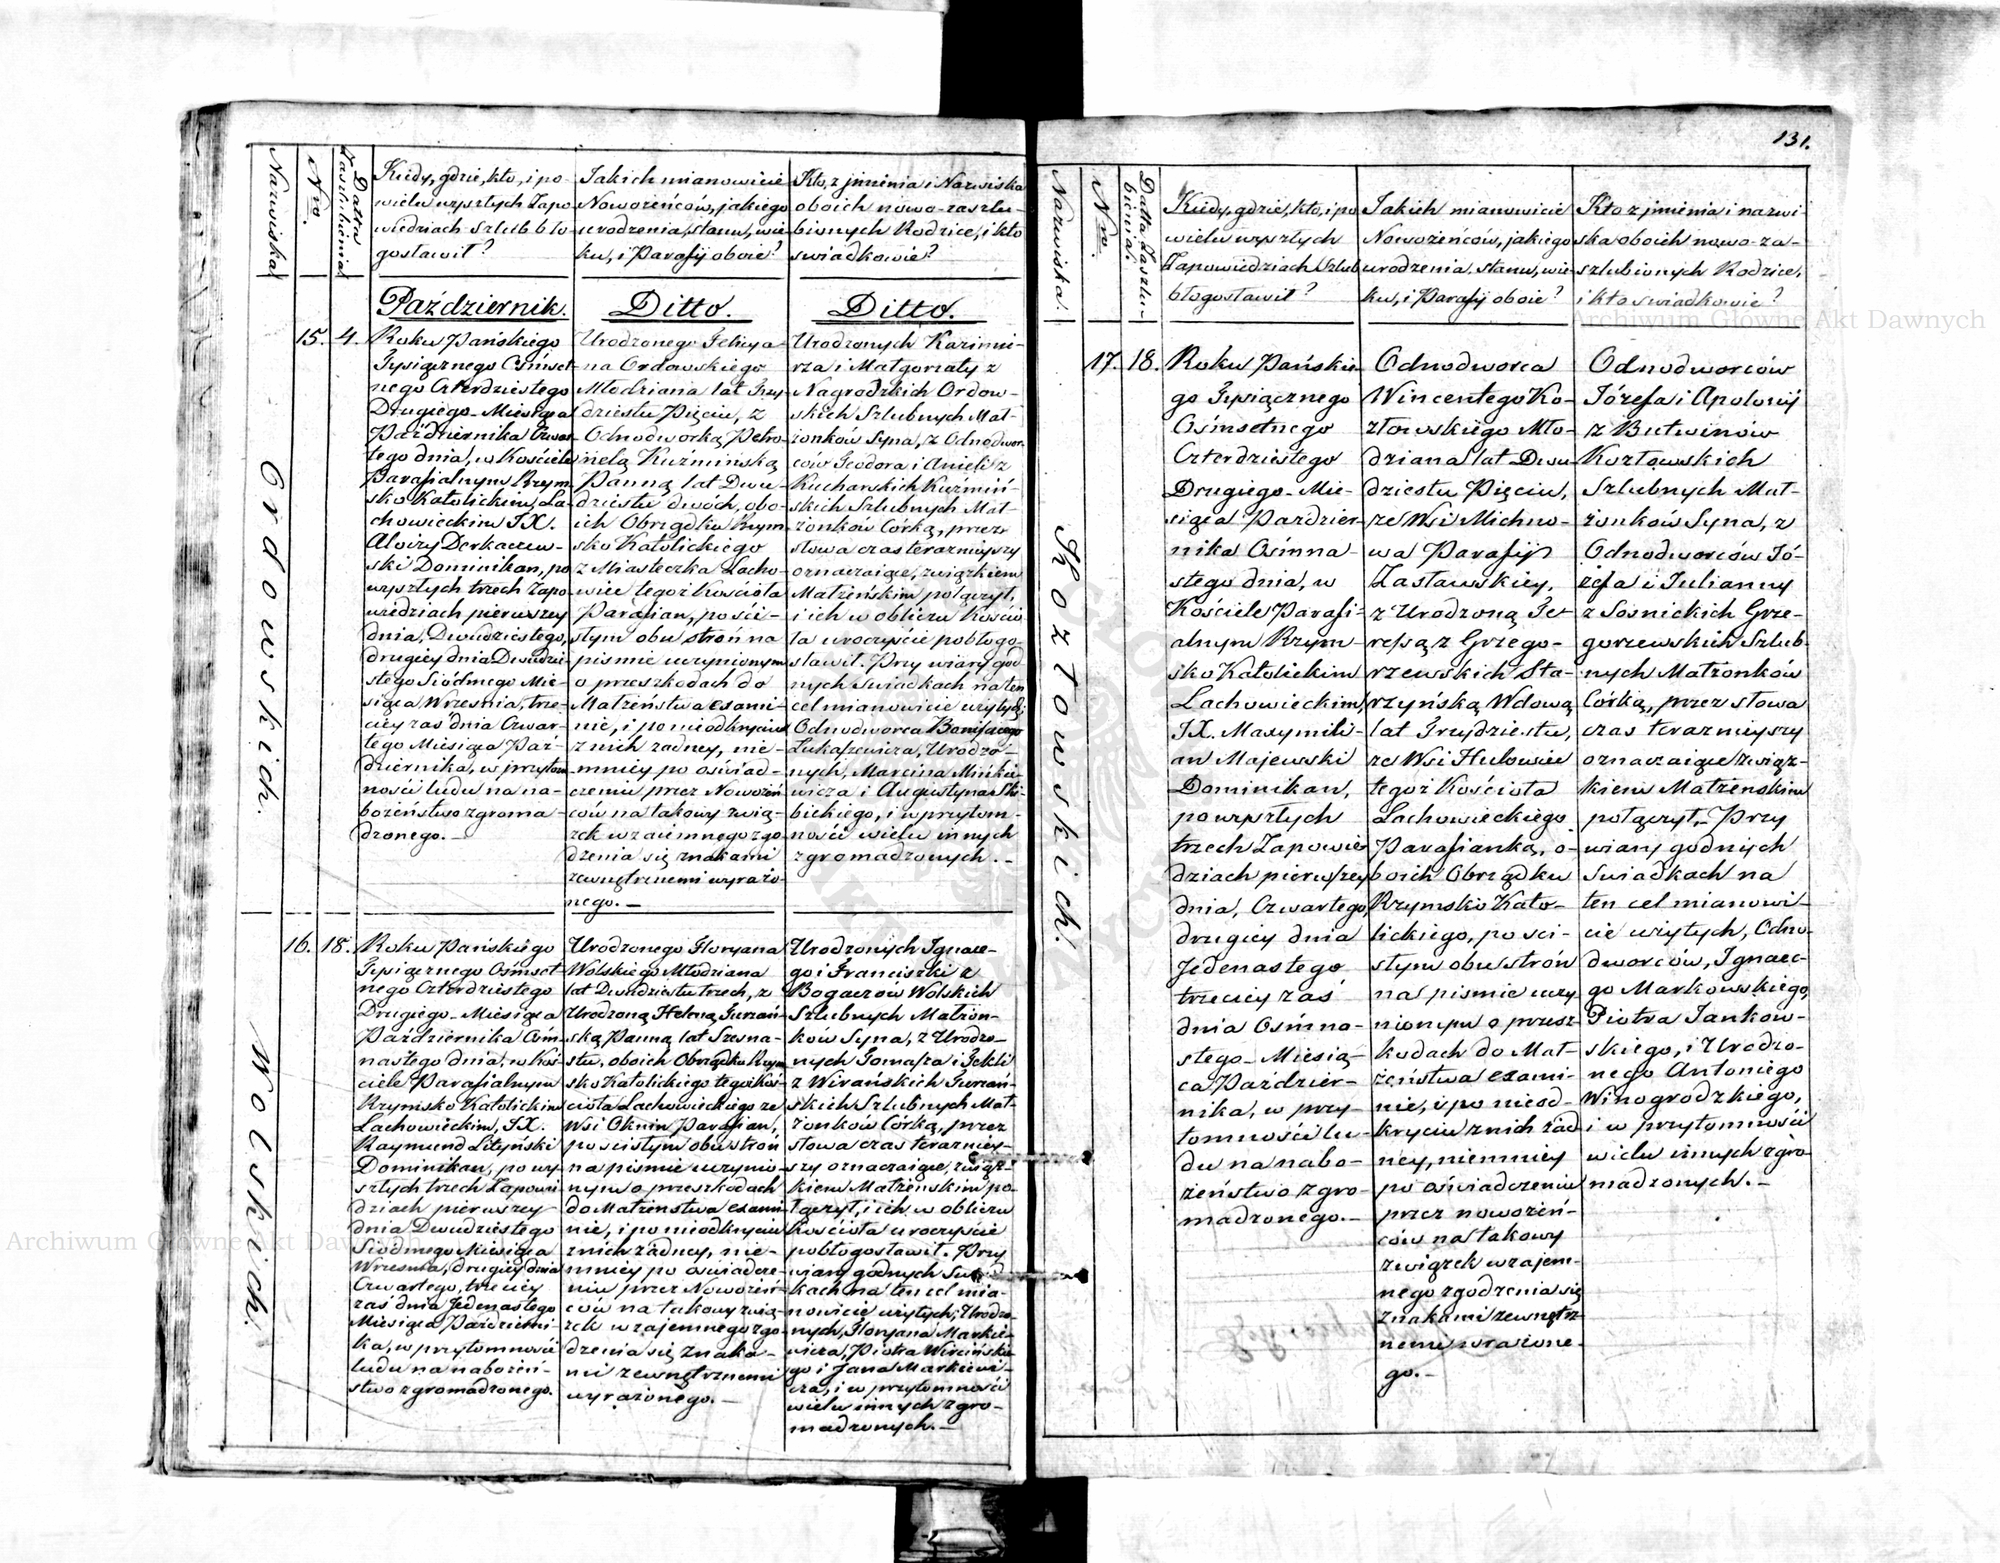 131.
Nazwiska
Nro.
Datta zaszlubienia
Kiedy, gdzie, kto, i po
wielu wyszłych Zapo
wiedziach Szlub bło-
gosławił?
Jakich mianowicie
Nowożeńców, jakiego
urodzenia, stanu, wie-
ku, i Parafij oboie?
Kto, z jmienia i Nazwiska
oboich nowo-zaszlu-
bionych Rodzice, i kto
swiadkowie?
Październik.
Ditto.
Ditto.
Ordowskich.
15.
4.
Roku Pańskiego
Tysiącznego Ośmset-
nego Czterdziestego
Drugiego Miesiąca
Października Czwar-
tego dnia, w Kościele
Parafialnym Rzym-
sko Katolickim, La-
chowieckim JX.
Aloizy Derkaczew-
ski Dominikan, po
wyszłych trzech Zapo
wiedziach pierwszey
dnia, Dwudziestego,
drugiey dnia Dwudzie-
stego Siódmego Mie-
siąca Wrzesnia, trze-
ciey zaś dnia Czwar-
tego Miesiąca Paź-
dziernika, w przytom-
ności ludu na na-
bożeństwo zgroma-
dzonego. -
Urodzonego Felicya-
na Ordowskiego
Młodziana lat Trzy-
dziestu Pięciu, z
Odnodworką Petro-
nelą Kuźmińską
Panną lat Dwu-
dziestu dwóch, obo-
ich Obrządku Rzym-
sko Katolickiego
z Miasteczka Lacho-
wiec tegoż Kościoła
Parafian, po ści-
słym obu stron na
pismie uczynionym
o przeszkodach do
Małżeństwa exami-
nie, i po nieodkryciu
z nich żadney, nie-
mniey po oświad-
czeniu przez Nowożeń
ców na takowy zwią-
zek wzaiemnego zgo
dzenia się znakami
zewnętrznemi wyrażo-
nego. -
Urodzonych Kazimi-
rza i Małgorzaty z
Nagrodzkich Ordow-
skich Szlubnych Mał-
żonków Syna, z Odnodwor-
ców Teodora i Anieli z
Kucharskich Kuźmiń-
skich Szlubnych Mał-
żonków Córką, przez
słowa czas terazniejszy
oznaczaiące, związkiem
Małżeńskim połączył,
i ich w obliczu Kościo-
ła uroczyscie pobłogo-
sławił. Przy wiary god-
nych Swiadkach na ten
cel mianowicie użytych;
Odnodworca Bonifacego
Łukaszewicza, Urodzo-
nych, Marcina Mińkie-
wicza i Augustyna Ski-
bickiego, i w przytom-
ności wielu innych
zgromadzonych. -
Wolskich.
16.
18.
Roku Pańskiego
Tysiącznego Ośmset-
nego Czterdziestego
Drugiego Miesiąca
Października Ośm-
nastego dnia, w Koś-
ciele Parafialnym
Rzymsko Katolickim
Lachowieckim, JX.
Raymund Lityński
Dominikan, po wy-
szłych trzech Zapowi
dziach pierwszey
dnia Dwudziestego
Siódmego Miesiąca
Wrzesnia, drugiey dnia
Czwartego, trzeciey
zaś dnia Jedenastego
Miesiąca Październi-
ka, w przytomności
ludu na nabożeń-
stwo zgromadzonego.
Urodzonego Floryana
Wolskiego Młodziana
lat Dwudziestu trzech, z
Urodzoną Heleną Turzań-
ską Panną lat Szesna-
stu, oboich Obrządku Rzym
sko Katolickiego tegoż Koś-
cioła Lachowieckiego ze
Wsi Oknin Parafian,
po scisłym obu stron
na pismie uczynio-
nym o przeszkodach
do Małżeństwa exami
nie, i po nieodkryciu
z nich żadney, nie-
mniey po oswiadcze-
niu przez Nowożeń-
ców na takowy zwią-
zek wzajemnego zgo
dzenia się znaka-
mi zewnętrznemi
wyrażonego. -
Urodzonych Ignace-
go i Franciszki z
Bogaczów Wolskich
Szlubnych Małżon-
ków Syna, z Urodzo-
nych Tomasza i Tekli
z Wirańskich Turzań-
skich Szlubnych Mał-
żonków Córką, przez
słowa czas terazniey-
szy oznaczaiące, związ-
kiem Małżeńskim po-
łączył, i ich w obliczu
Kościoła uroczyscie
pobłogosławił. Przy
wiary godnych Swiad-
kach na ten cel mia-
nowicie użytych; Urodzo-
nych, Floryana Markie-
wicza, Piotra Wircińskie-
go i Jana Markiewi-
cza, i w przytomności
wielu innych zgro-
madzonych. -
Nazwiska.
Nro.
Datta Zaszlu-
bienia.
Kiedy, gdzie, kto, i po
wielu wyszłych
Zapowiedziach Szlub
błogosławił?
Jakich mianowicie
Nowożeńców, jakiego
urodzenia, stanu, wie-
ku, i Parafij oboie?
Kto z jmienia i nazwi-
ska oboich nowo-za-
szlubionych Rodzice,
i kto swiadkowie?
Kozłowskich.
17.
18.
Roku Pańskie-
go Tysiącznego
Ośmsetnego
Czterdziestego
Drugiego Mie-
siąca Paździer-
nika Osimna-
stego dnia, w
Kościele Parafi-
alnym Rzym-
sko Katolickim
Lachowieckim,
JX. Maxymili-
an Majewski
Dominikan,
po wyszłych
trzech Zapowie-
dziach pierwszey
dnia, Czwartego,
drugiey dnia
Jedenastego
trzeciey zaś
dnia Osimna-
stego Miesią-
ca Paździer-
nika, w przy-
tomności lu-
du na nabo-
żeństwo zgro-
madzonego. -
Odnodworca
Wincentego Ko-
złowskiego Mło-
dziana lat Dwu-
dziestu Pięciu,
ze Wsi Michno-
wa Parafij
Zasławskiey,
z Urodzoną Te-
ressą z Grzego-
rzewskich Sta-
rzyńską Wdową
lat Trzydziestu,
ze Wsi Hulowiec
tegoż Kościoła
Lachowieckiego
Parafianką, o-
boich Obrządku
Rzymsko Kato-
lickiego, po sci-
słym obu stron
na pismie uczy
nionym o przesz-
kodach do Mał-
żeństwa exami-
nie, i po nieod-
kryciu z nich żad
ney, niemniey
po oświadczeniu
przez nowożeń-
ców na takowy
związek wzajem-
nego zgodzenia się
znakami zewnętrz-
nemi wrażone-
go. -
Odnodworców
Józefa i Apolonij
z Butwinów
Kozłowskich
Szlubnych Mał-
żonków Syna, z
Odnodworców Jó-
zefa i Julianny
z Sośnickich Grze-
gorzewskich Szlub-
nych Małżonków
Córką, przez słowa
czas terazniejszy
oznaczaiące związ-
kiem Małżeńskim
połączył, - Przy
wiary godnych
Swiadkach na
ten cel mianowi-
cie użytych, Odno-
dworców, Ignace-
go Markowskiego,
Piotra Jankow-
skiego, i Urodzo-
nego Antoniego
Winogrodzkiego,
i w przytomności
wielu innych zgro-
madzonych. -
Archiwum Główne Akt Dawnych
Archiwum Główne Akt Dawnych